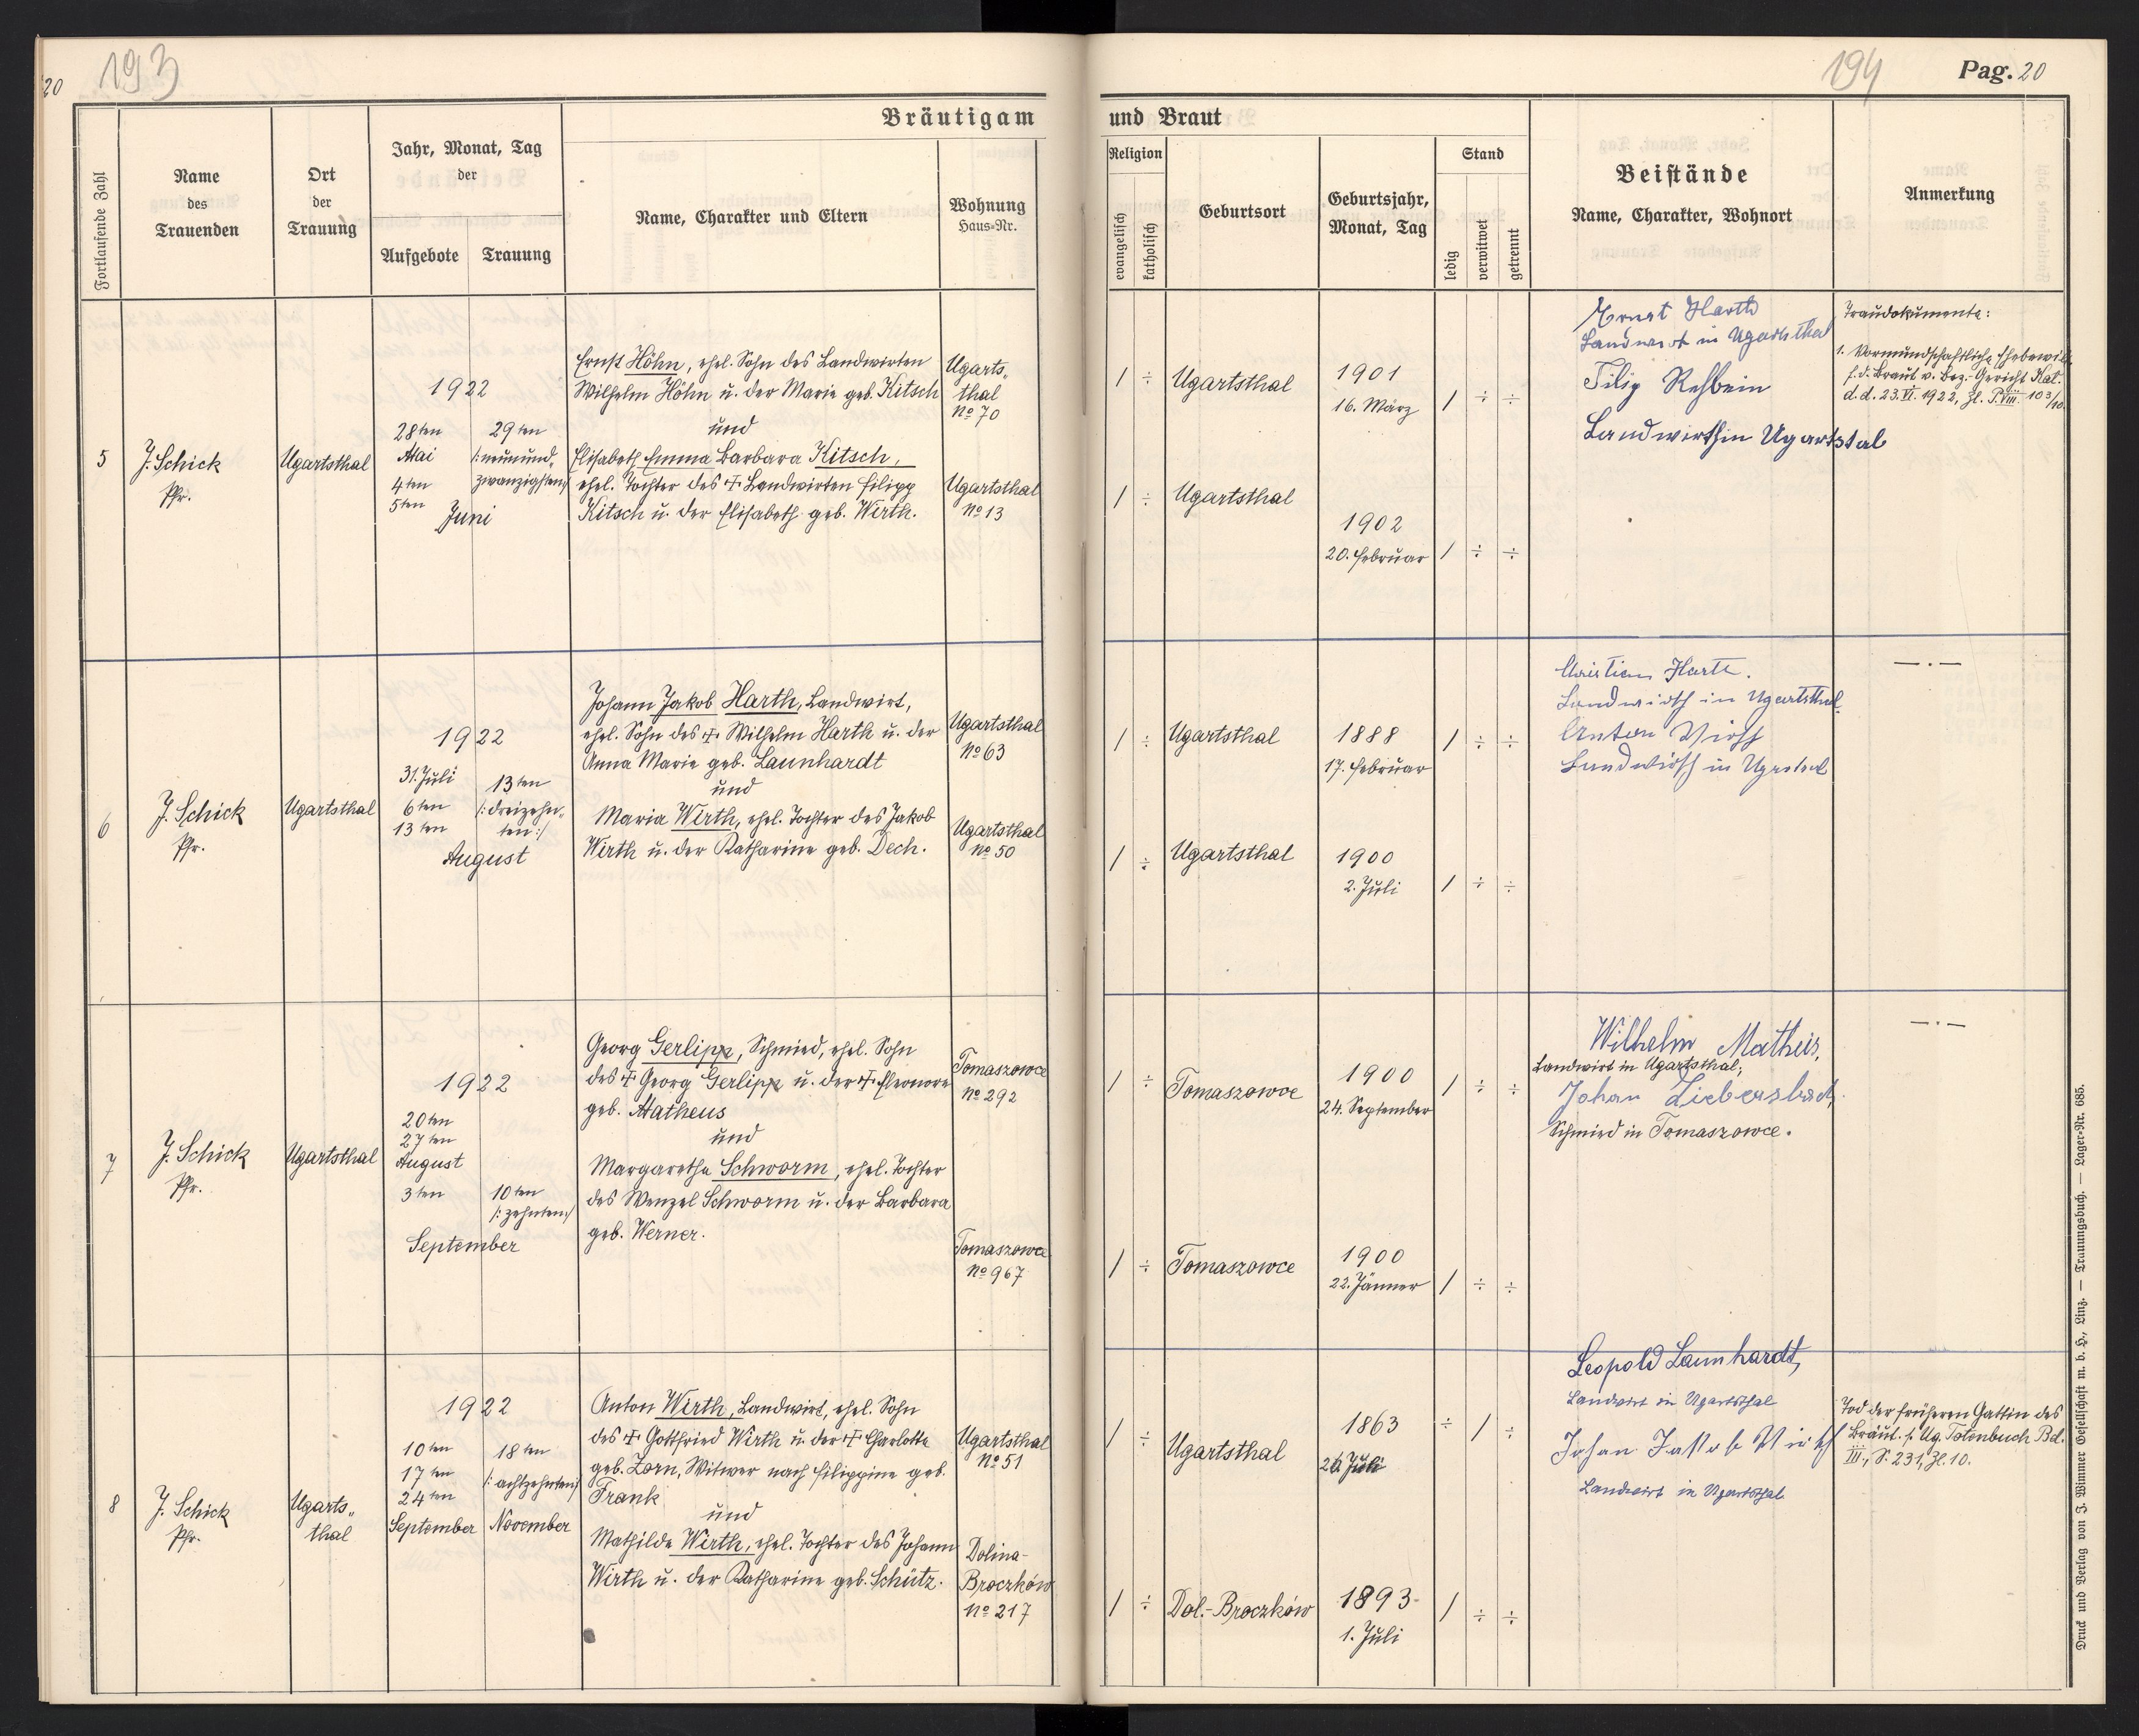 20
193
194
Pag. 20
Bräutigam
und Braut
Fortlaufende Zahl
Name
des
Trauenden
Ort
der
Trauung
Jahr, Monat, Tag
der
Aufgebote
Trauung
Name, Charakter und Eltern
Wohnung
Haus=Nr.
Religion
evangelisch
katholisch
Geburtsort
Geburtsjahr,
Monat, Tag
Stand
ledig
verwitwet
getrennt
Beistände
Name, Charakter, Wohnort
Anmerkung
5
J. Schick
Pfr.
Ugartsthal
1922
28ten
Mai
4ten
5ten
Juni
29ten
/:neunund„
zwanzigsten:/
Ernst Höhn, ehel. Sohn des Landwirten
Wilhelm Höhn u. der Marie geb. Kitsch
und
Elisabeth Emma Barbara Kitsch,
ehel. Tochter des † Landwirten Filipp
Kitsch u. der Elisabeth geb. Wirth.
Ugarts„
thal
No 70
Ugartsthal
No 13
/ ÷
Ugartsthal
1901
16. März
/ ÷ ÷
/ ÷
Ugartsthal
1902
20. Februar
/ ÷ ÷
Ernst Harth
Landwirt in Ugartsthal
Filip Rehbein
Landwirth in Ugartstal
Traudokumente:
1. Vormundschaftliche Ehebewill.
f. d. Braut v. Bez.-Gericht Kał.
d. d. 23. VI. 1922, Zl. P. VIII. 103/10.
6
J. Schick
Pfr.
Ugartsthal
1922
31. Juli
6ten
13ten
August
13ten
/:dreizehn„
ten:/
Johann Jakob Harth, Landwirt,
ehel. Sohn des † Wilhelm Harth u. der
Anna Marie geb. Launhardt
und
Maria Wirth, ehel. Tochter des Jakob
Wirth u. der Katharine geb. Dech.
Ugartsthal
No 63
Ugartsthal
No 50
/ ÷
Ugartsthal
1888
17. Februar
/ ÷ ÷
/ ÷
Ugartsthal
1900
2. Juli
/ ÷ ÷
Christian Harth.
Landwirth in Ugartsthal
Anton Wirth
Landwirth in
— . —
7
J. Schick
Pfr.
Ugartsthal
1922
20ten
27ten
August
3ten
September
10ten
/:zehnten:/
Georg Gerlipp, Schmied, ehel. Sohn
des † Georg Gerlipp u. der † Eleonore
geb. Matheus
und
Margaretha Schworm, ehel. Tochter
des Wenzel Schworm u. der Barbara
geb. Werner.
Tomaszowce
No 292
Tomaszowce
No 967
/ ÷
Tomaszowce
1900
24. September
/ ÷ ÷
/ ÷
Tomaszowce
1900
22. Jänner
/ ÷ ÷
Wilhelm Matheis,
Landwirt in Ugartsthal;
Johan Liebersbach,
Schmied in Tomaszowce.
— . —
8
J. Schick
Pfr.
Ugarts„
thal
1922
10ten
17ten
24ten
September
18ten
/:achtzehnten:/
November
Anton Wirth, Landwirt, ehel. Sohn
des † Gottfried Wirth u. der † Charlotte
geb. Zorn, Witwer nach Filippine geb.
Frank
und
Mathilde Wirth, ehel. Tochter des Johann
Wirth u. der Katharine geb. Schütz.
Ugartsthal
No 51
Dolina-
Broczków
No 217
/ ÷
Ugartsthal
1863
Juli
÷ / ÷
/ ÷
Dol.-Broczków
1893
1. Juli
/ ÷ ÷
Leopold Launhardt,
Landwirt in Ugartsthal
Johan Jakob Wirth
Landwirt in Ugartsthal
Tod der früheren Gattin des
Bräut. s. Ug. Totenbuch Bd.
III., S. 231, Zl. 10.
Druck und Verlag von J. Wimmer Gesellschaft m. b. H., Linz. — Trauungsbuch. — Lager=Nr. 685.